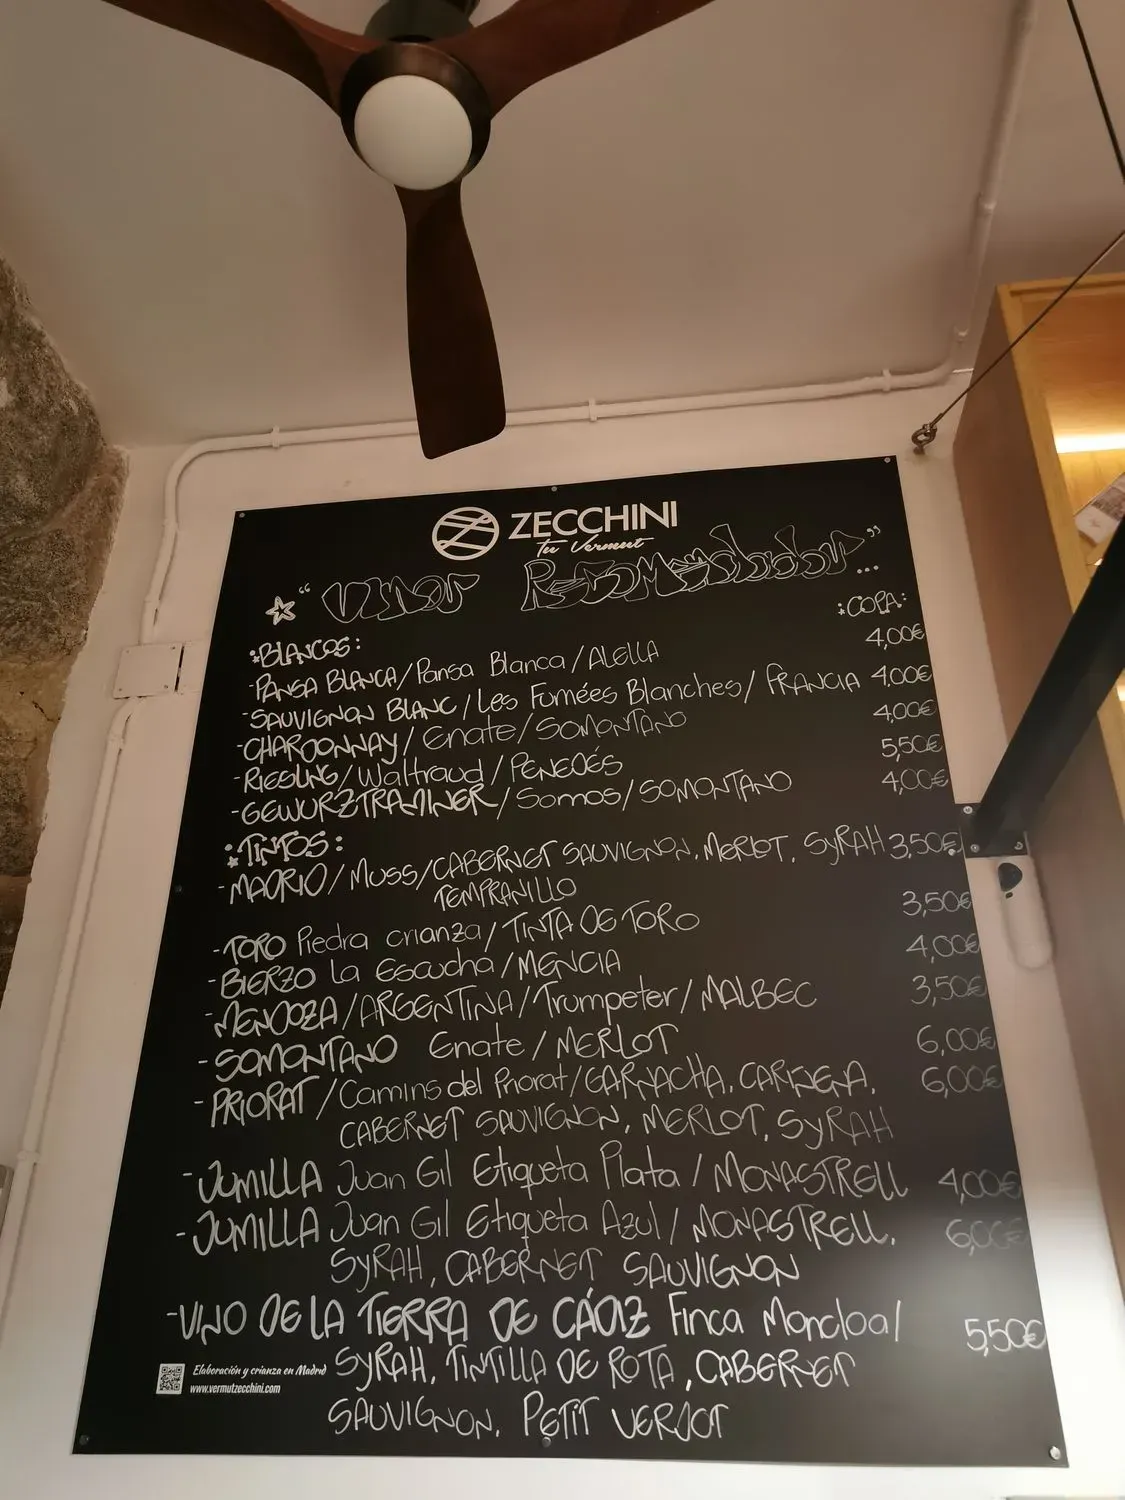 ZECCHINI
Tu Vermut
"Vinos Recomendados"...
:COPA:
*BLANCOS:
-PANSA BLANCA/Pansa Blanca/ALELLA 4,00€
-SAUVIGNON BLANC/Les Fumées Blanches/FRANCIA 4,00€
-CHARDONNAY/Enate/SOMONTANO 4,00€
-RIESLING/Waltraud/PENEDÉS 5,50€
-GEWURZTRAMINER/Somos/SOMONTANO 4,00€
*TINTOS:
-MADRID/Muss/CABERNET SAUVIGNON, MERLOT, SYRAH 3,50€
TEMPRANILLO
-TORO Piedra crianza/TINTA DE TORO 3,50€
-BIERZO La Escucha/MENCIA 4,00€
-MENDOZA/ARGENTINA/Trumpeter/MALBEC 3,50€
-SOMONTANO Enate/MERLOT 6,00€
-PRIORAT/Camins del Priorat/GARNACHA, CARIÑENA, 6,00€
CABERNET SAUVIGNON, MERLOT, SYRAH
-JUMILLA Juan Gil Etiqueta Plata/MONASTRELL 4,00€
-JUMILLA Juan Gil Etiqueta Azul/MONASTRELL, 6,00€
SYRAH, CABERNET SAUVIGNON
-VINO DE LA TIERRA DE CÁDIZ Finca Moncloa/ 5,50€
SYRAH, TINTILLA DE ROTA, CABERNET
SAUVIGNON, PETIT VERDOT
Elaboración y crianza en Madrid
www.vermutzecchini.com